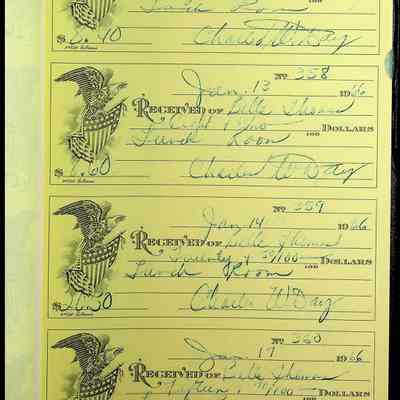 Lunch Room
$8.40 Charles W. Day
Jan. 13 No 358 1966
RECEIVED OF Belle Thomas
Eight & 100 DOLLARS
Lunch Room
.60 Charles W Day
Jan 14 No 359 1966
RECEIVED OF Belle Thomas
Twenty & 50/100 100 DOLLARS
Lunch Room
$20.50 Charles W Day
Jan. 17 No 360 1966
RECEIVED OF Belle Thomas
Fifteen 100 DOLLARS